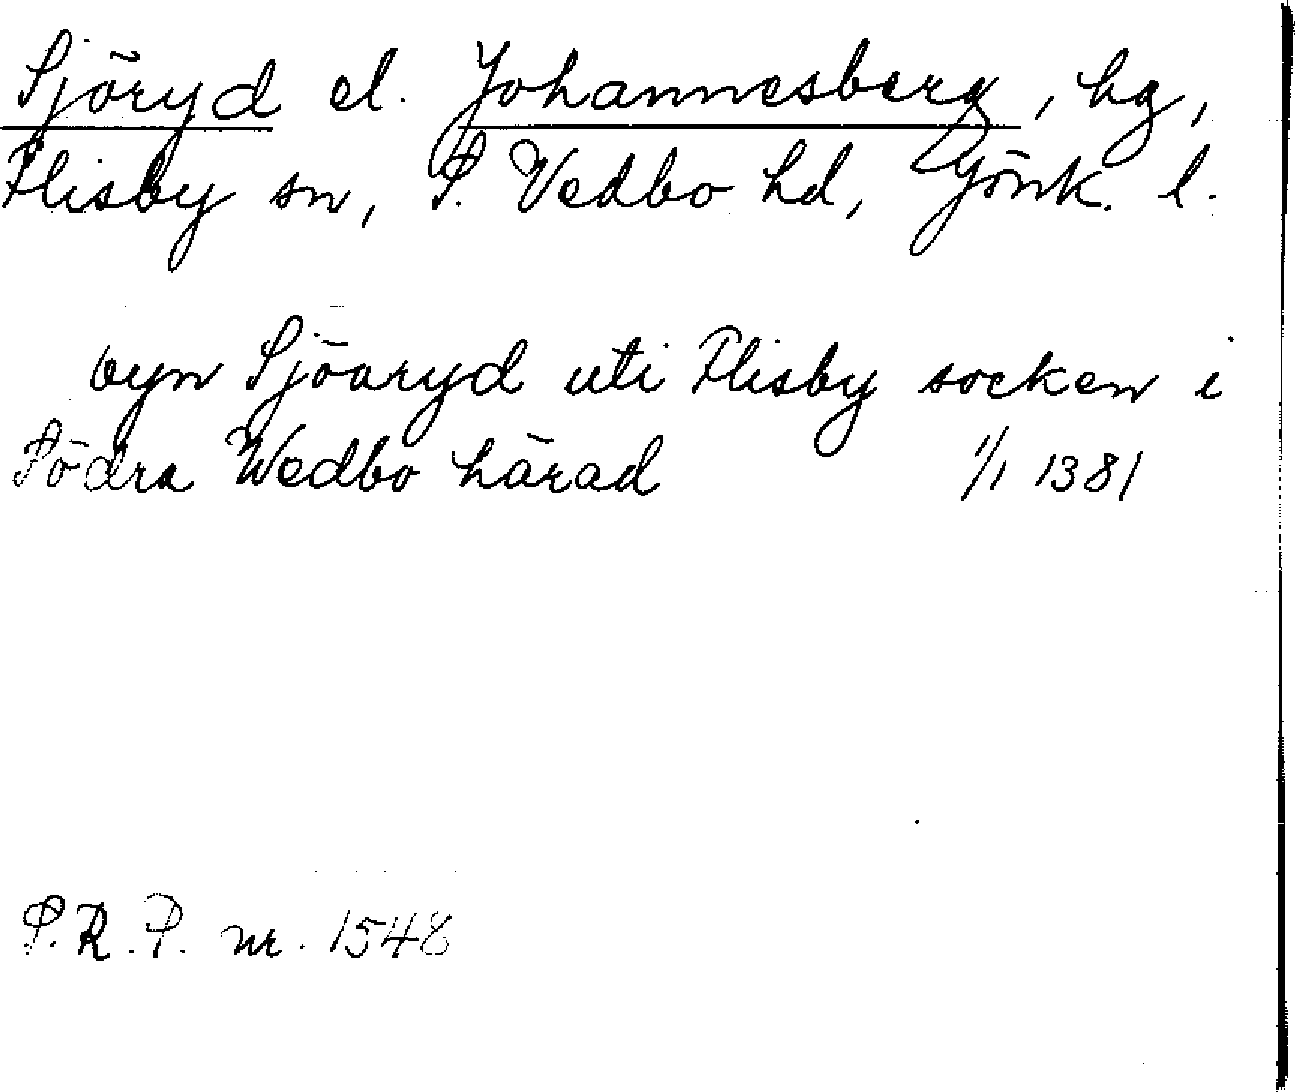 Sjöryd el. Johannesberg, hg,
Flisby sn, S. Vedbo hd, Jönk. l.
byn Sjöaryd uti Flisby socken i
Södra Wedbo härad 1/1 1381
S.R.P. nr. 1548